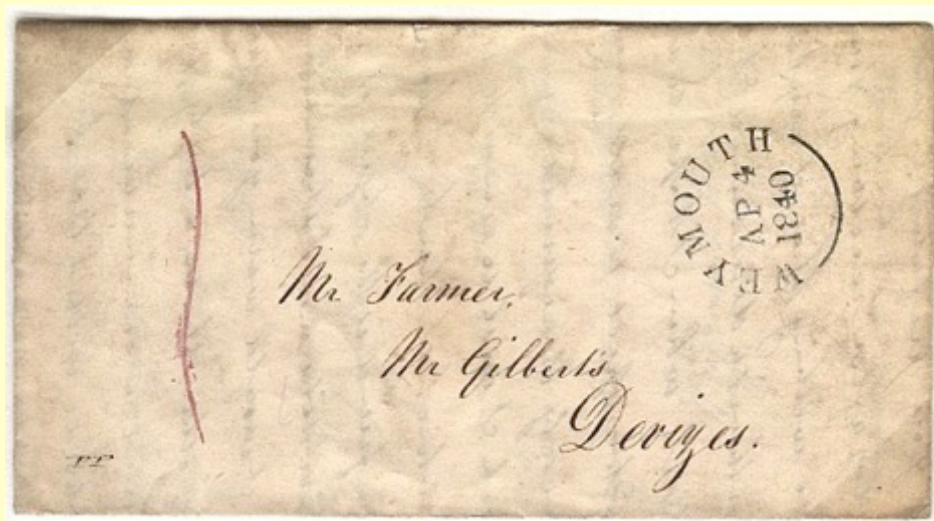 WEYMOUTH
AP 4
1840
Mr Farmer,
Mr Gilberts
Devizes.